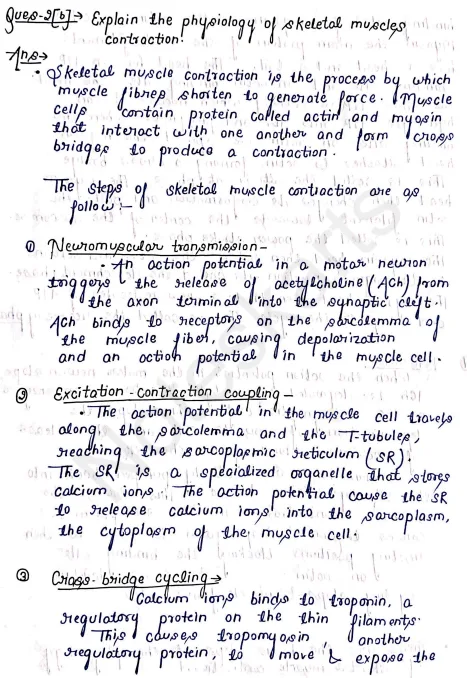 Ques-2[b]→ Explain the physiology of skeletal muscles
contraction.
Ans→
• Skeletal muscle contraction is the process by which
muscle fibres shorten to generate force. Muscle
cells contain protein called actin and myosin
that interact with one another and form cross
bridges to produce a contraction.
The steps of skeletal muscle contraction are as
follow :-
① Neuromuscular transmission -
• An action potential in a motor neuron
triggers the release of acetylcholine (ACh) from
the axon terminal into the synaptic cleft.
ACh binds to receptors on the sarcolemma of
the muscle fiber, causing depolarization
and an action potential in the muscle cell.
② Excitation-contraction coupling -
• The action potential in the muscle cell travels
along the sarcolemma and the T-tubules,
reaching the sarcoplasmic reticulum (SR).
The SR is a specialized organelle that stores
calcium ions. The action potential cause the SR
to release calcium ions into the sarcoplasm,
the cytoplasm of the muscle cell.
③ Cross-bridge cycling →
Calcium ions binds to troponin, a
regulatory protein on the thin filaments.
This causes tropomyosin another
regulatory protein, to move & expose the